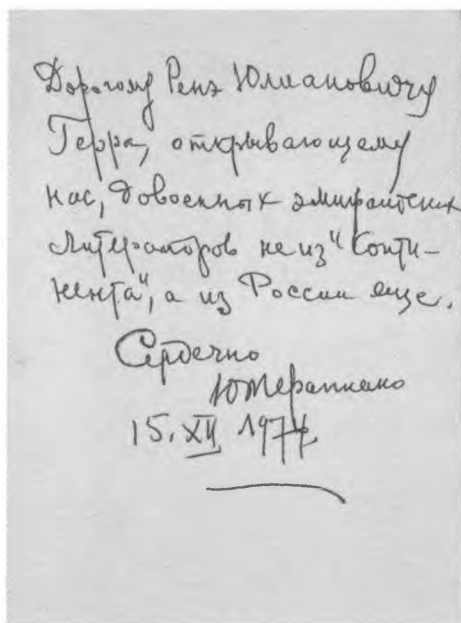 Дорогому Ренэ Юлиановичу
Герра, открывающему
нас, довоенных эмигрантских
литераторов не из "Конти-
нента", а из России еще.
Сердечно
Ю Терапиано
15. XII 1974